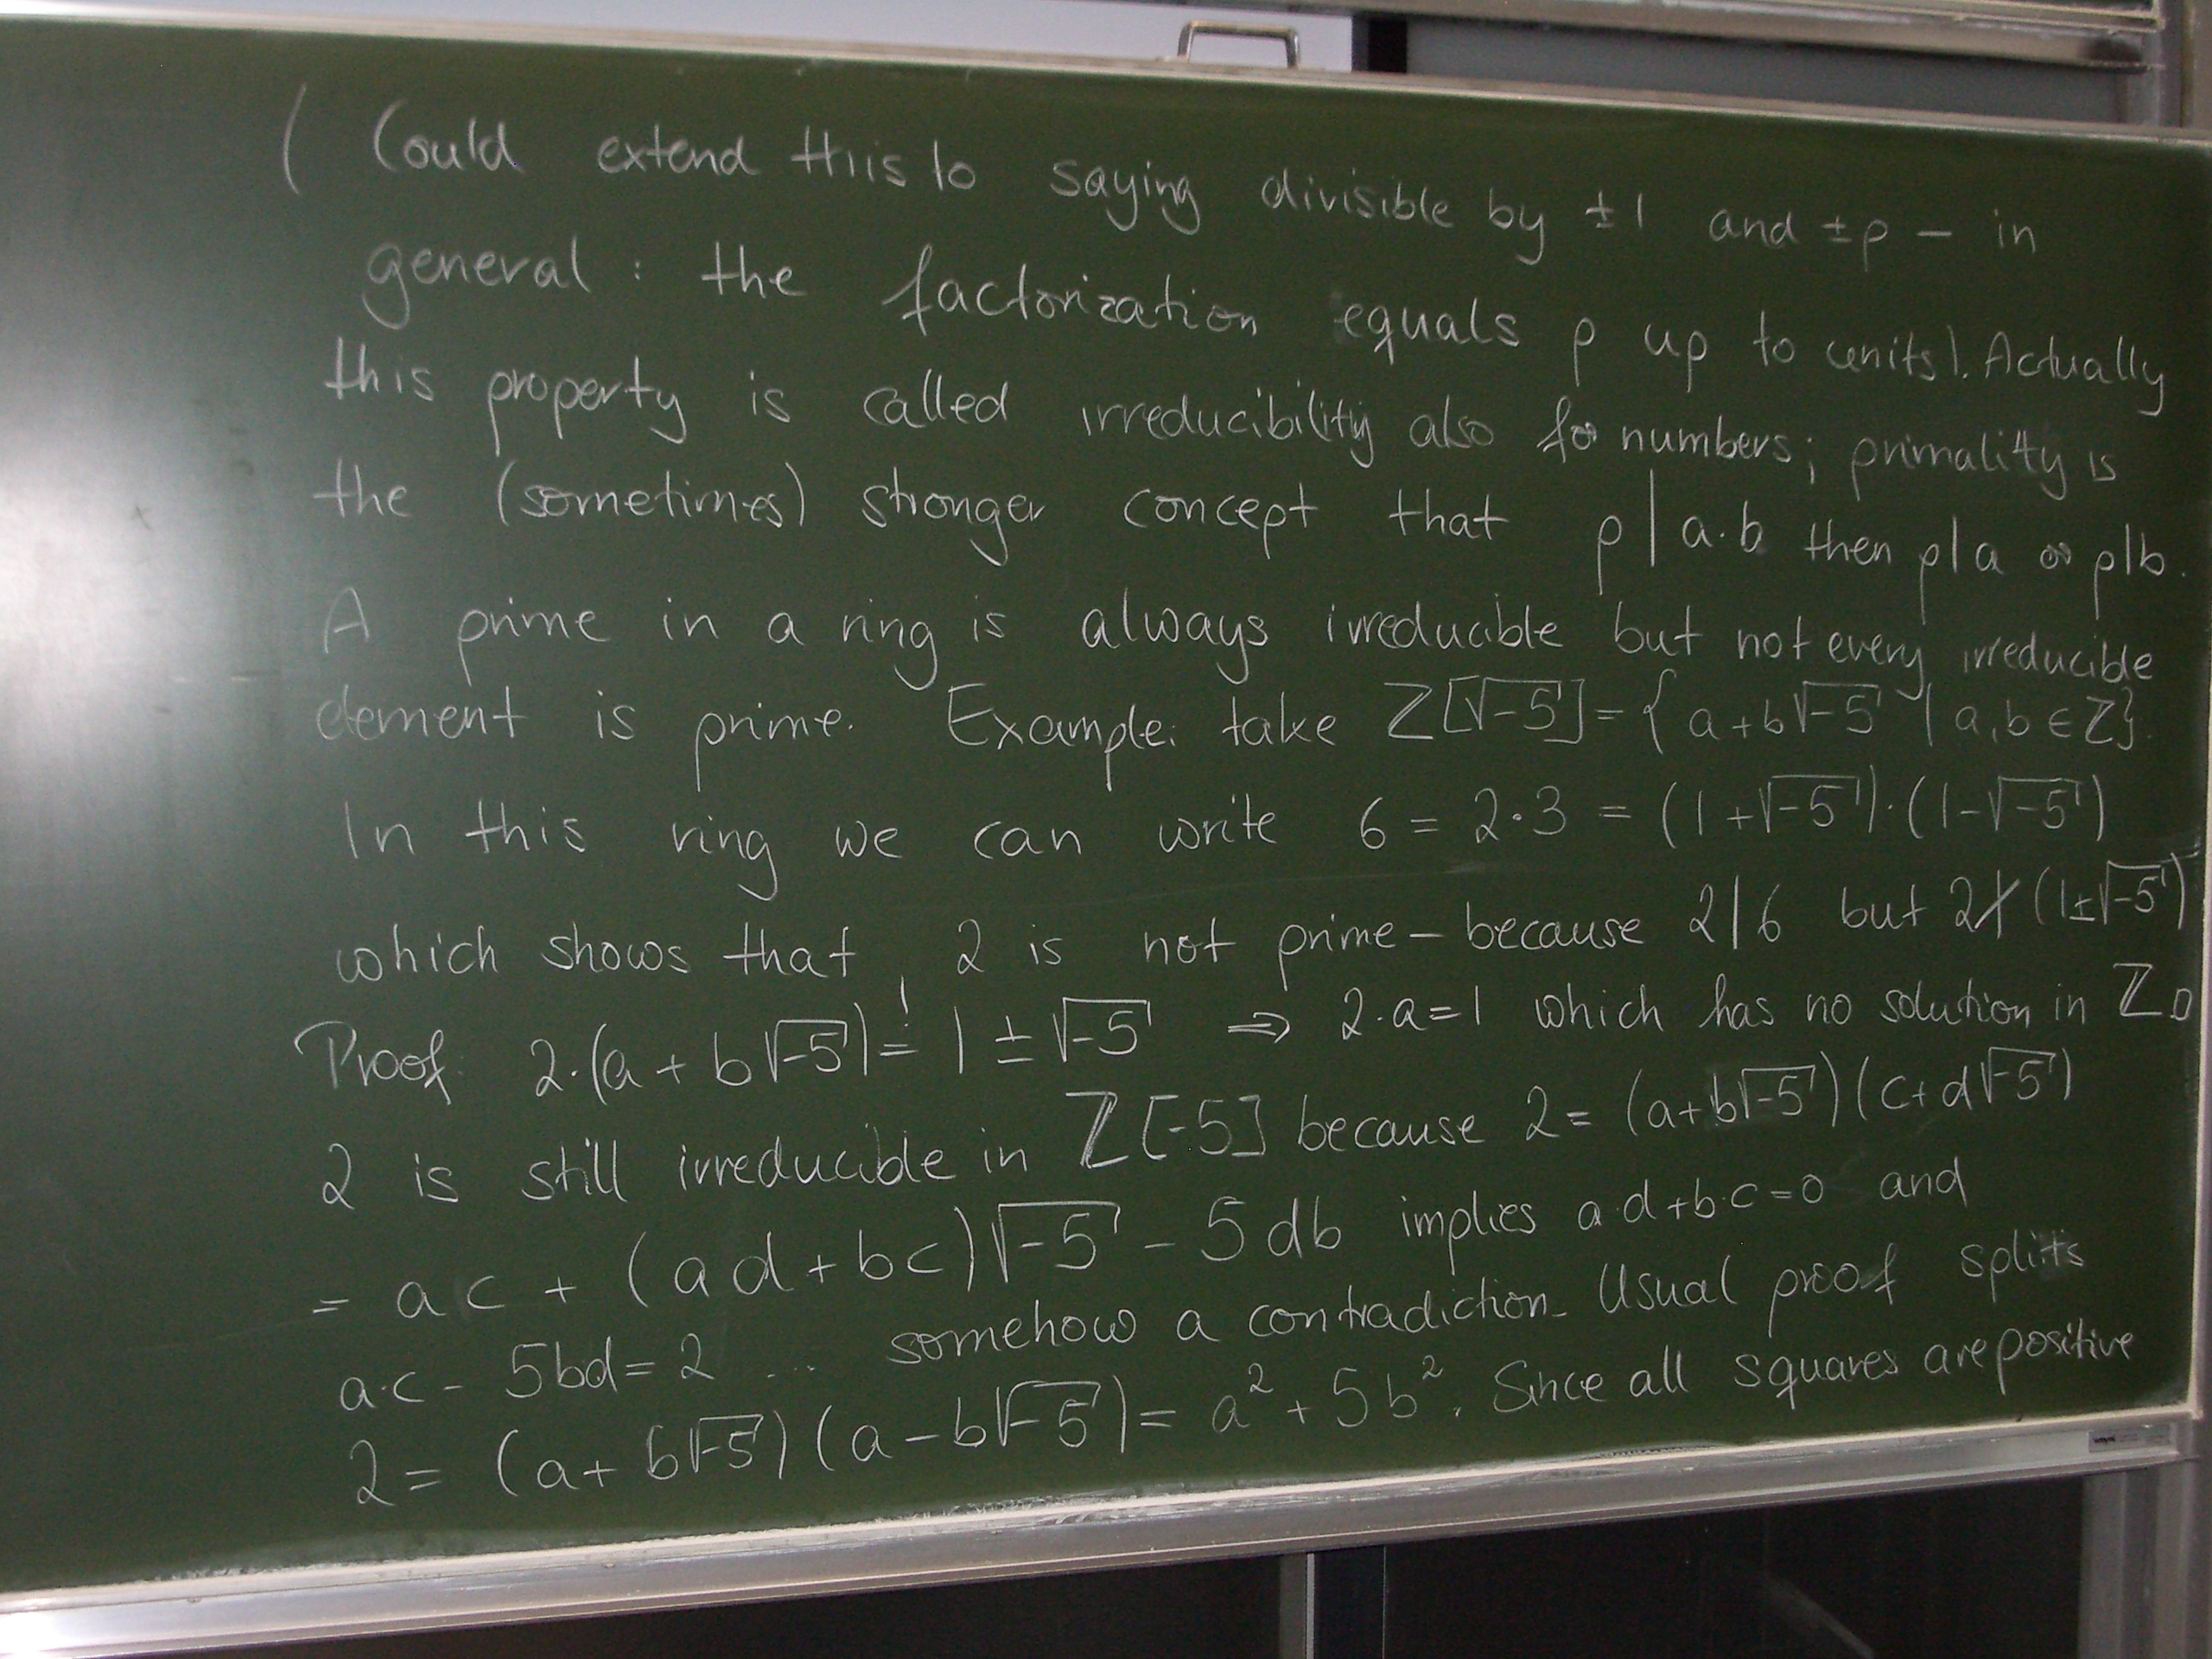 ( Could extend this to saying divisible by ±1 and ±p – in
general : the factorization equals p up to units). Actually
this property is called irreducibility also for numbers; primality is
the (sometimes) stronger concept that p | a·b then p|a or p|b.
A prime in a ring is always irreducible but not every irreducible
element is prime. Example: take Z[√-5] = { a+b√-5 | a,b ∈ Z}.
In this ring we can write 6 = 2·3 = (1+√-5)·(1-√-5)
which shows that 2 is not prime – because 2|6 but 2∤(1±√-5)
Proof: 2·(a + b√-5) =! 1 ± √-5 ⇒ 2·a=1 which has no solution in Z □
2 is still irreducible in Z[-5] because 2 = (a+b√-5)(c+d√-5)
= ac + (ad+bc)√-5 - 5db implies a·d+b·c=0 and
a·c - 5bd = 2 ... somehow a contradiction. Usual proof splits
2 = (a+b√-5)(a-b√-5) = a² + 5b². Since all squares are positive